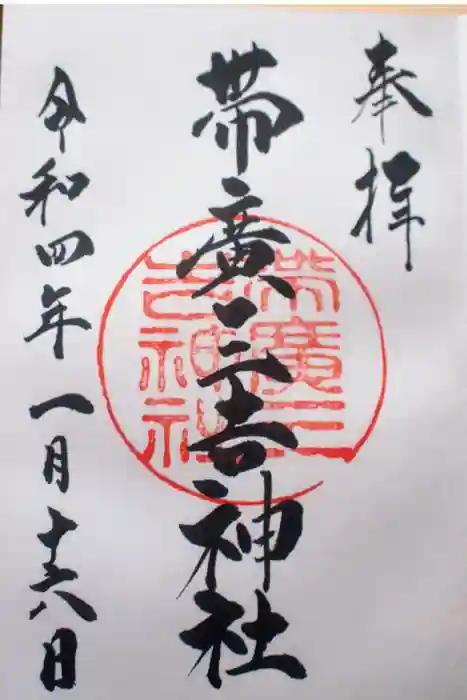 奉拝
帯廣三吉神社
令和四年一月十六日
帯廣三
吉神社